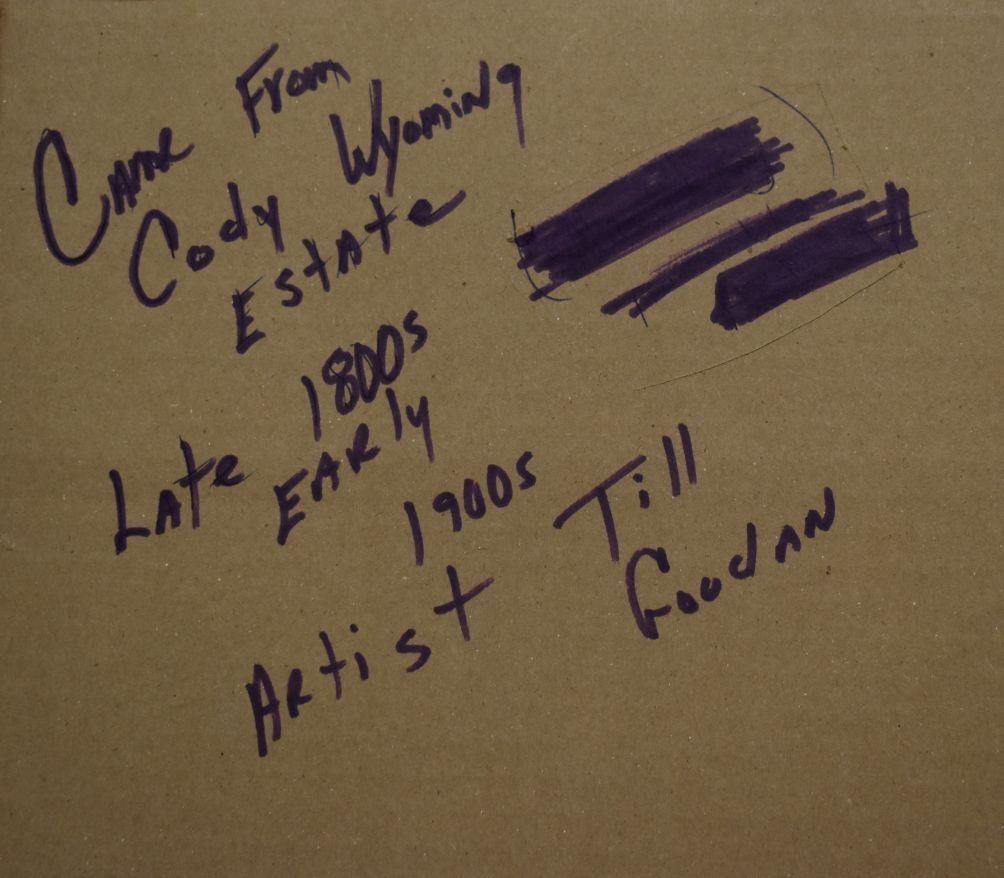 Came From
Cody Wyoming
Estate
Late 1800s
Early
1900s
Artist Till
Goodan